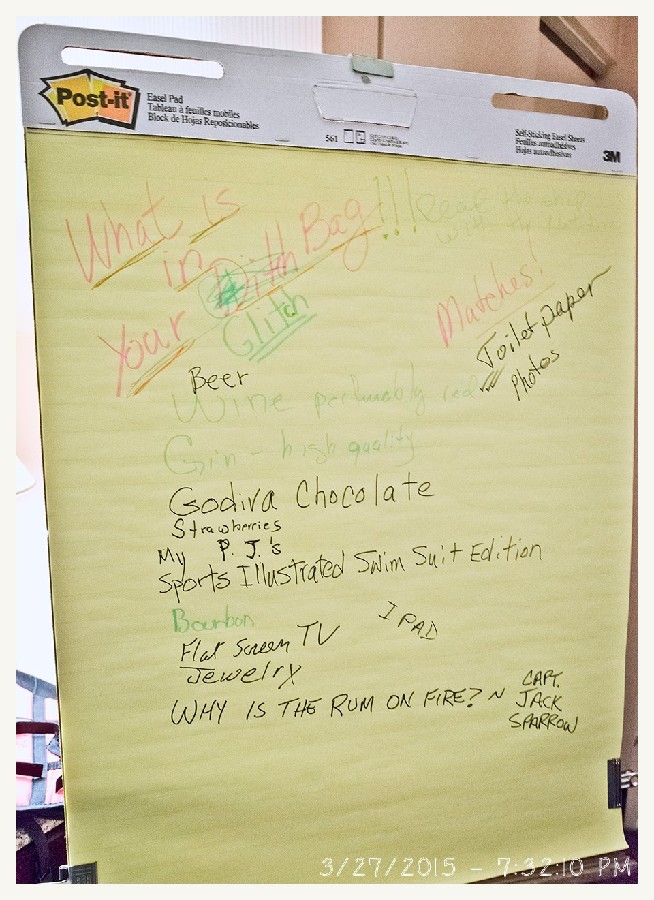 Post-it®
Easel Pad
Tableau à feuilles mobiles
Block de Hojas Reposicionables
561
Self-Sticking Easel Sheets
Feuilles autoadhésives
Hojas autoadhesivas
3M
What is
in With Bag!!!
Your Glitch
Matches!
Toilet paper
Photos
Beer
Wine red
Gin - high quality
Godiva Chocolate
Strawberries
My P.J.'s
Sports Illustrated Swim Suit Edition
Bourbon
I PAD
Flat Screen TV
Jewelry
WHY IS THE RUM ON FIRE? ~ CAPT.
JACK
SPARROW
3/27/2015 - 7:32:10 PM